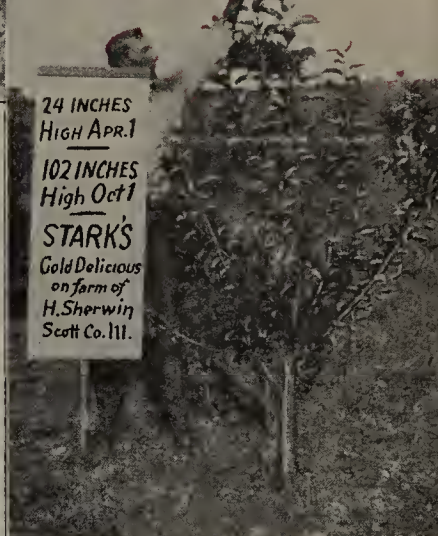 24 INCHES
HIGH APR.1
102 INCHES
High Oct 1
STARK'S
Gold Delicious
on farm of
H.Sherwin
Scott Co. Ill.